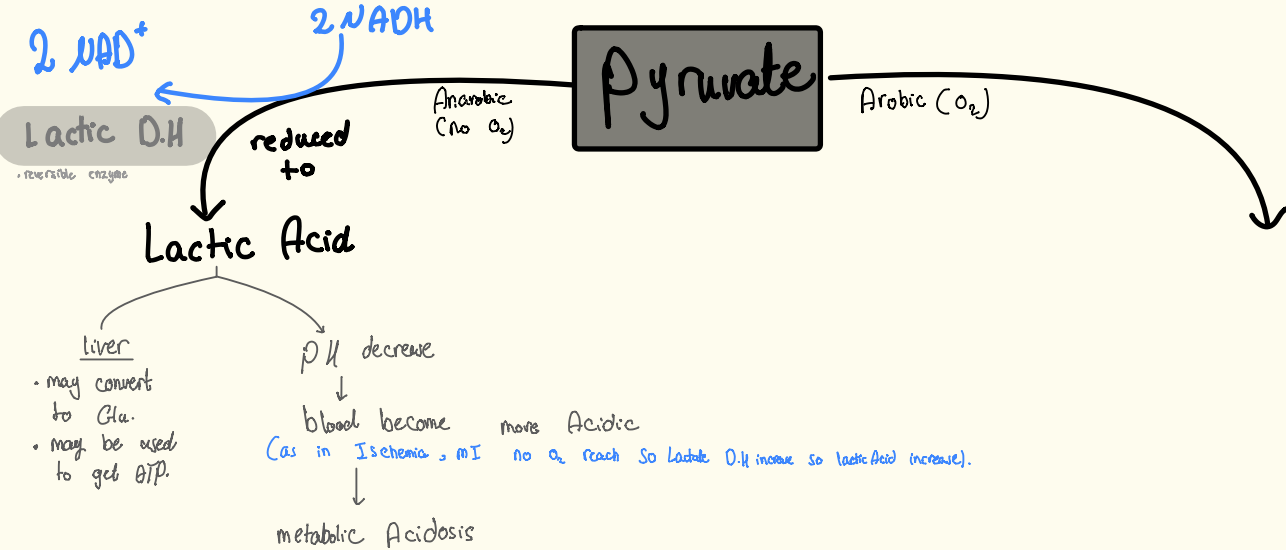 2 NADH
2 NAD+
Pyruvate
Anarobic
(no O2)
Arobic (O2)
Lactic D.H
• reversible enzyme
reduced
to
Lactic Acid
liver
• may convert
to Glu.
• may be used
to get ATP.
pH decrease
blood become more Acidic
(as in Ischemia, MI no O2 reach so Lactate D.H increase so lactic Acid increase).
metabolic Acidosis